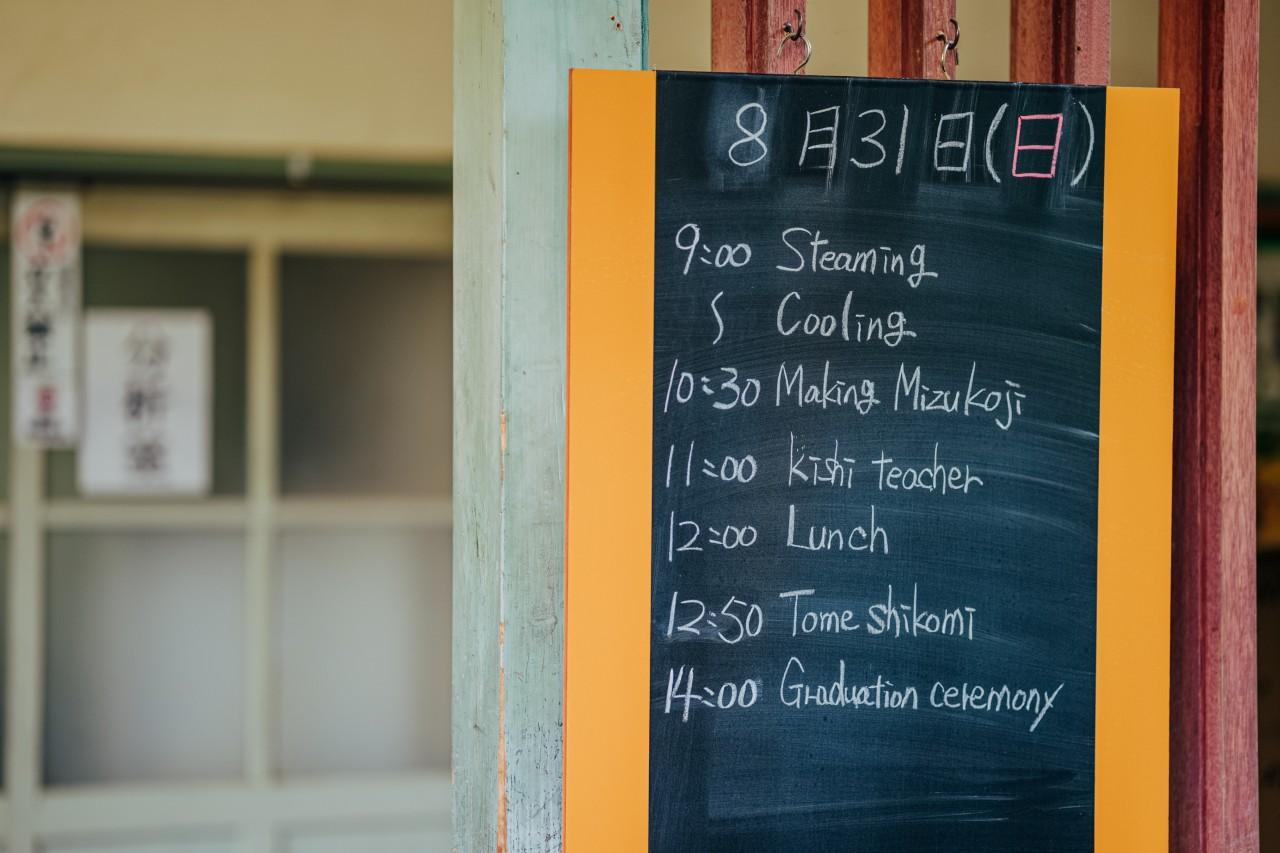 8月31日(日)
9:00 Steaming
〜 Cooling
10:30 Making Mizukoji
11:00 kishi teacher
12:00 Lunch
12:50 Tome shikomi
14:00 Graduation ceremony
分析室